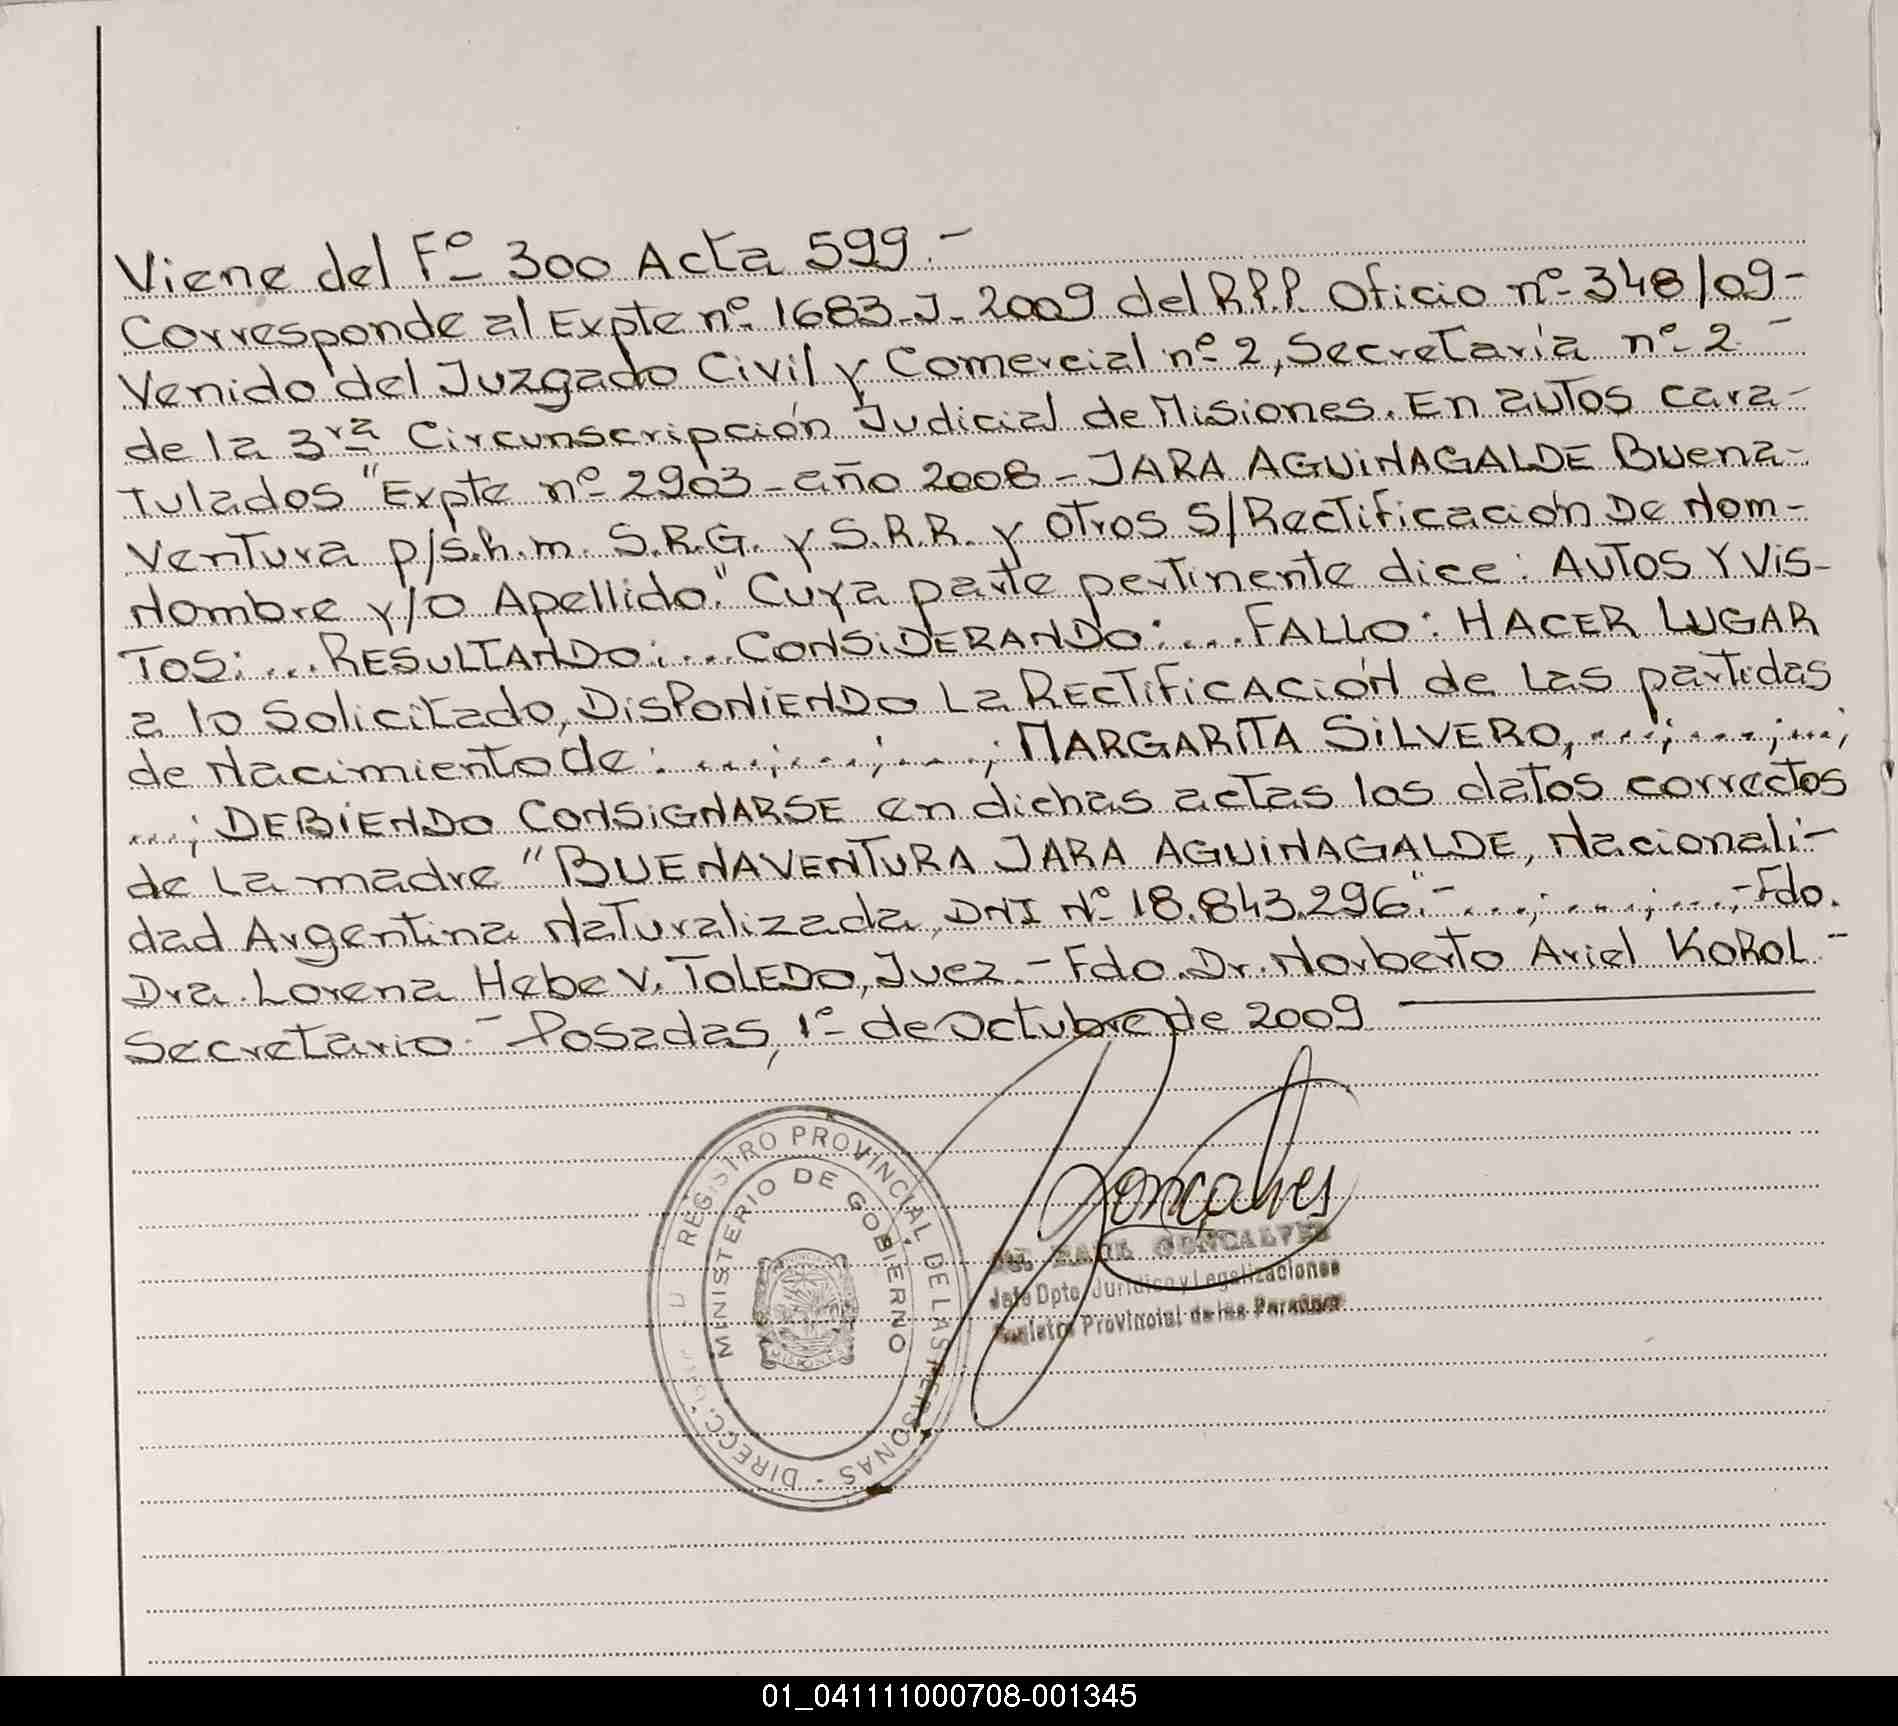 Viene del Fº 300 Acta 599.-
Corresponde al Expte nº 1683-J-2009 del R.P.P. Oficio nº 348/09-
Venido del Juzgado Civil y Comercial nº 2, Secretaría nº 2 -
de la 3ra Circunscripción Judicial de Misiones. En autos cara-
tulados "Expte nº 2903-año 2008-JARA AGUINAGALDE Buena-
Ventura p/s.h.m. S.R.G. y S.R.R. y otros S/Rectificación De Nom-
Nombre y/o Apellido". Cuya parte pertinente dice: AUTOS Y VIS-
TOS: ... RESULTANDO: ... CONSIDERANDO: ... FALLO: HACER LUGAR
a lo Solicitado, DISPONIENDO La RECTIFICACIÓN de Las partidas
de Nacimiento de: ...; ...; ...; MARGARITA SILVERO, ...; ...; ...;
...; DEBIENDO CONSIGNARSE en dichas actas los datos correctos
de La madre "BUENAVENTURA JARA AGUINAGALDE, Nacionali-
dad Argentina Naturalizada, DNI Nº 18.843.296".- ...; ...; ...;-Fdo.
Dra. Lorena Hebe V. TOLEDO, Juez.- Fdo. Dr. Norberto Ariel KOROL -
Secretario - Posadas, 1º de Octubre de 2009
REGISTRO PROVINCIAL DE LAS PERSONAS - DIRECC.
MINISTERIO DE GOBIERNO
MISIONES
Goncalves
RAUL GONCALVES
Jefe Dpto. Jurídico y Legalizaciones
Registro Provincial de las Personas
01_041111000708-001345